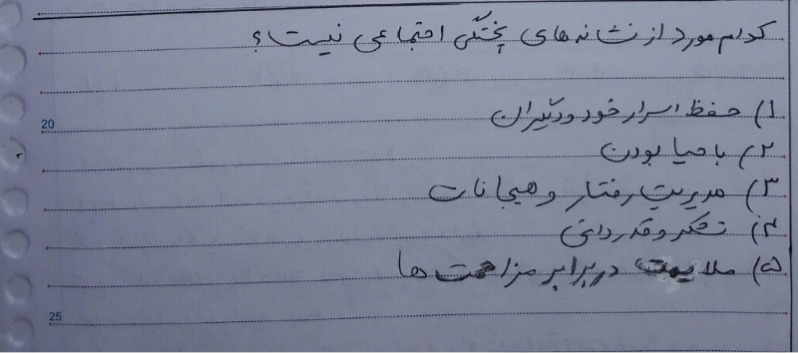 کدام مورد از نشانه های پختگی اجتماعی نیست؟
۱) حفظ اسرار خود و دیگران
20
۲) با حیا بودن
۳) مدیریت رفتار و هیجانات
۴) تشکر و قدردانی
۵) ملایمت در برابر مزاحمت ها
25